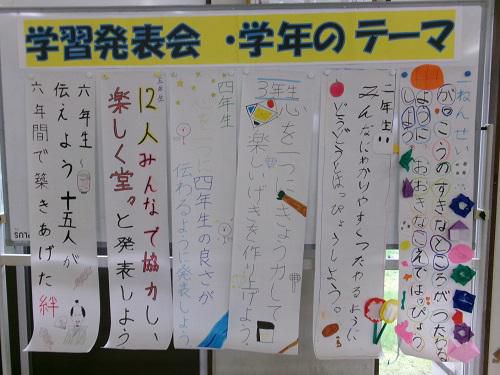 学習発表会・学年のテーマ
一ねんせい
がっこうのすきなところがつたわる
ように おおきなこえではっぴょう
しよう
二年生
みんなにわかりやすくつたわるように
どうどうとはっぴょうしよう。
3年生
心を一つにきょう力して
楽しいげきを作り上げよう
四年生
四年生の良さが
伝わるように発表しよう
五年生
12人みんなで協力し、
楽しく堂々と発表しよう
六年生
伝えよう 十五人が
六年間で築きあげた 絆
PLUS